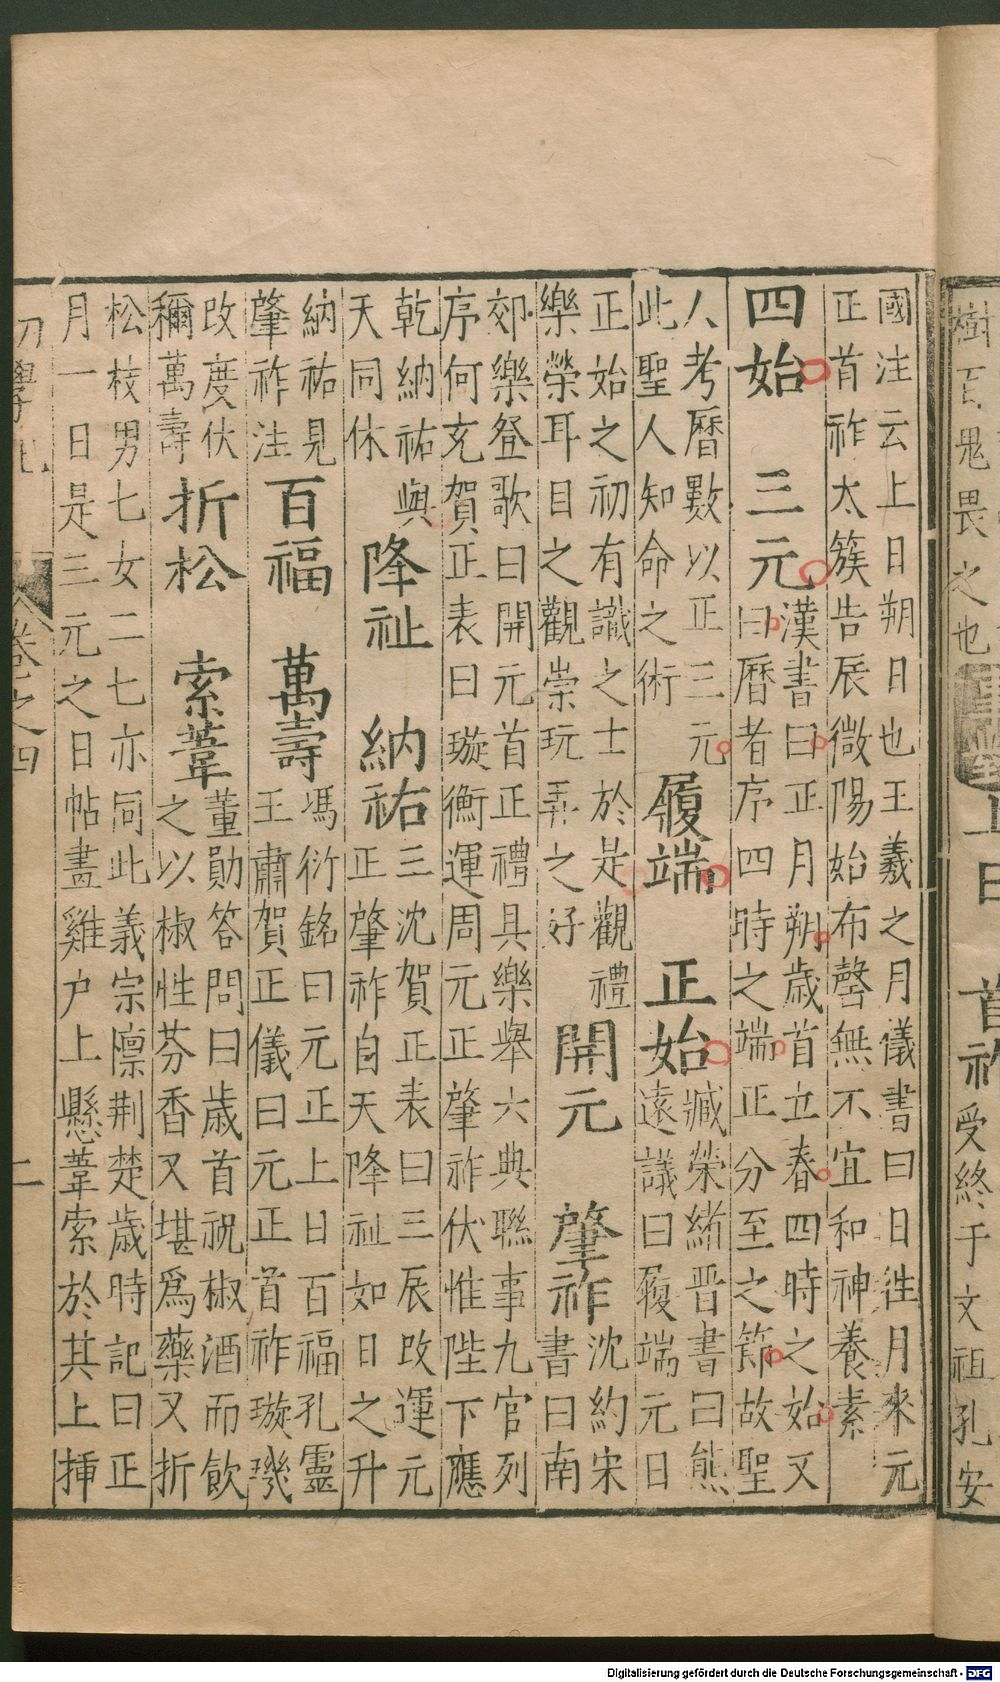 樹百鬼畏之也
上日 首祚 受終于文祖孔安
國注云上日朔日也王羲之月儀書曰日往月來元
正首祚太簇告辰微陽始布罄無不宜和神養素
四始 三元 漢書曰正月朔歲首立春四時之始又
曰曆者序四時之端正分至之節故聖
人考曆數以正三元
此聖人知命之術
履端 正始 臧榮緒晋書曰熊
遠議曰履端元日
正始之初有識之士於是觀禮
樂榮耳目之觀崇玩弄之好
開元 肇祚 沈約宋
書曰南
郊樂登歌曰開元首正禮具樂舉六典聯事九官列
序何充賀正表曰璇衡運周元正肇祚伏惟陛下應
乾納祐與
天同休
降祉 納祐 三沈賀正表曰三辰改運元
正肇祚自天降祉如日之升
納祐見
肇祚注
百福 萬壽 馮衍銘曰元正上日百福孔靈
王肅賀正儀曰元正首祚璇璣
改度伏
稱萬壽
折松 索葦 董勛答問曰歲首祝椒酒而飲
之以椒性芬香又堪爲藥又折
松枝男七女二七亦同此義宗懍荊楚歲時記曰正
月一日是三元之日帖畫雞户上懸葦索於其上揷
初學記 卷之四 二
Digitalisierung gefördert durch die Deutsche Forschungsgemeinschaft - DFG